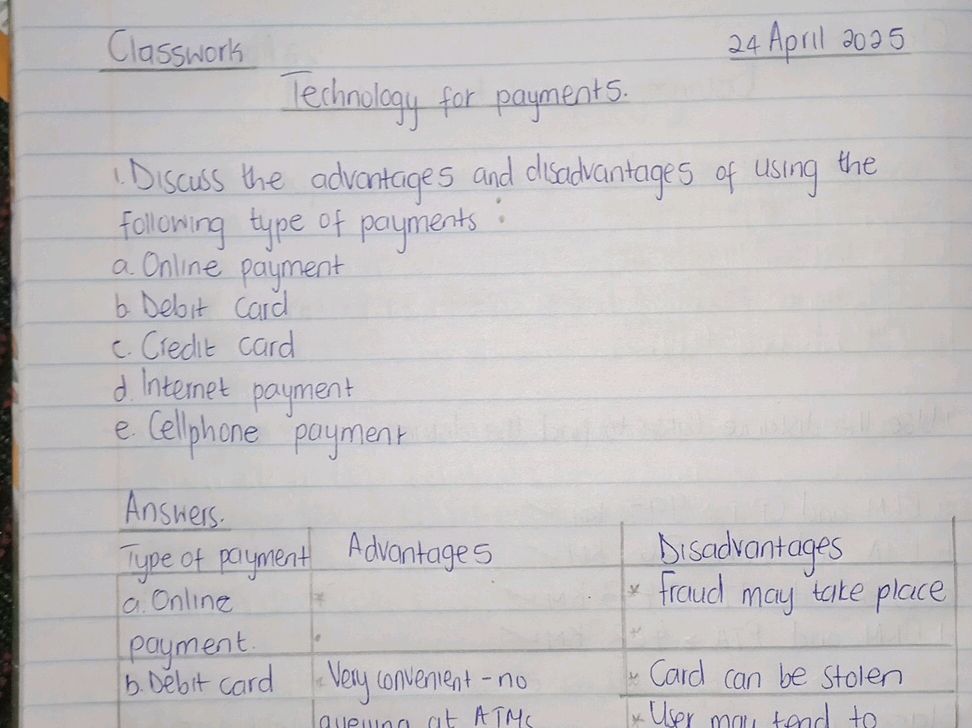 Classwork
24 April 2025
Technology for payments.
1. Discuss the advantages and disadvantages of using the
following type of payments :
a. Online payment
b. Debit card
c. Credit card
d. Internet payment
e. Cellphone payment
Answers.
Type of payment Advantages Disadvantages
a. Online * * Fraud may take place
payment.
b. Debit card Very convenient - no * Card can be stolen
queuing at ATMs * User may tend to